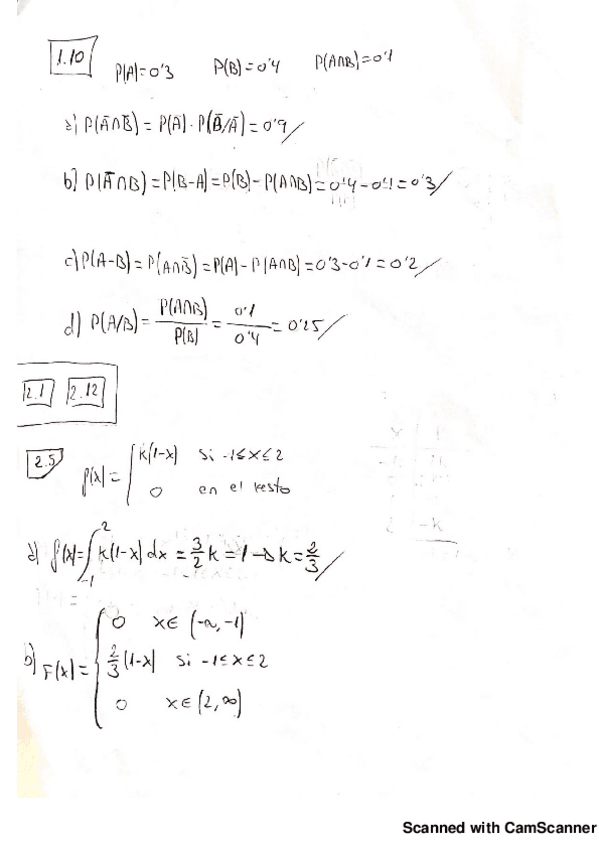 1.10 P(A)=0'3 P(B)=0'4 P(A∩B)=0'1
a) P(Ā∩B̄) = P(Ā)·P(B̄/Ā) = 0'9/
b) P(Ā∩B) = P(B-A) = P(B) - P(A∩B) = 0'4 - 0'1 = 0'3/
c) P(A-B) = P(A∩B̄) = P(A) - P(A∩B) = 0'3 - 0'1 = 0'2/
d) P(A/B) = P(A∩B)/P(B) = 0'1/0'4 = 0'25/
2.1 2.12
2.5 f(x) = { k(1-x) si -1≤x≤2
0 en el resto
a) f(x) = ∫_{-1}^{2} k(1-x) dx = 3/2 k = 1 → k = 2/3 /
b) F(x) = { 0 x∈(-∞,-1)
2/3 (1-x) si -1≤x≤2
0 x∈(2,∞)
Scanned with CamScanner